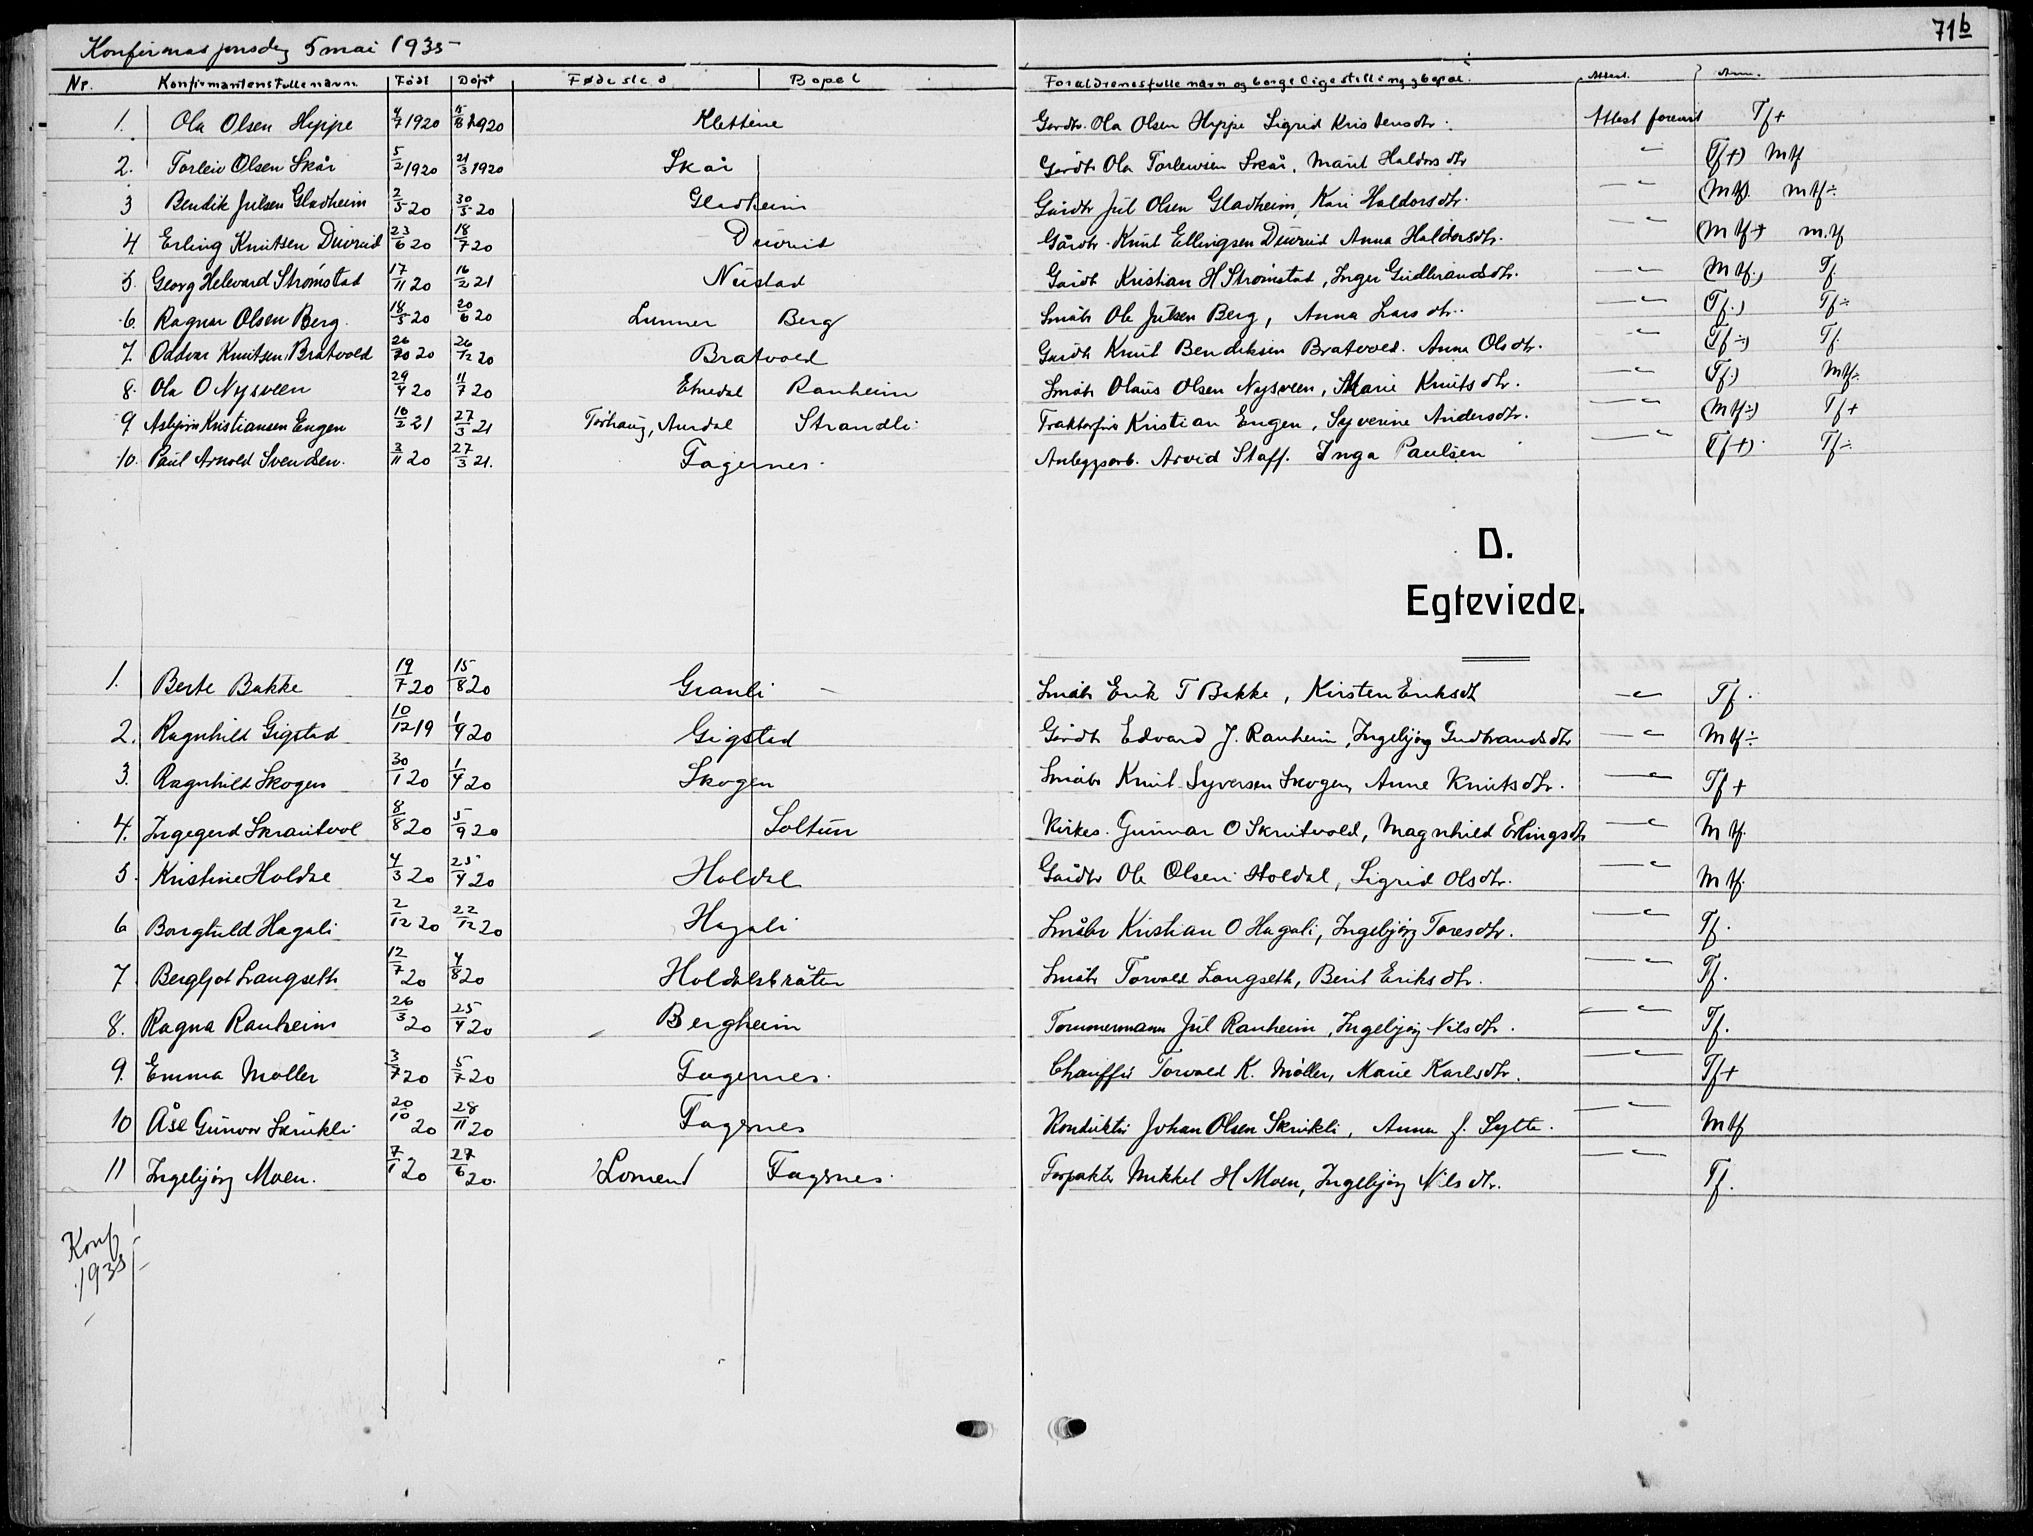 71b
Konfirmasjonsdag 5 mai 1935
Nr. Konfirmantens fulle navn. Født Døpt Fødested Bopel Foraldrenes fulle navn og borgelige stilling og bopæl. Attest. Anm.
1. Ola Olsen Hippe 4/7 1920 15/8 1920 Klettene Gardbr. Ola Olsen Hippe Sigrid Kristensdtr. Attest forevist Tf+
2. Torleiv Olsen Skår 5/2 1920 21/3 1920 Skår Gårdbr Ola Torleivsen Skår, Marit Haldorsdtr —"— (Tf+) Mtf
3 Bendik Julsen Gladheim 2/5 20 30/5 20 Gladheim Gårdbr Jul Olsen Gladheim, Kari Haldorsdtr. —"— (Mtf) mtf÷
4. Erling Knutsen Duvrud 23/6 20 18/7 20 Duvrud Gårdbr. Knut Ellingsen Duvrud Anna Haldorsdtr. —"— (Mtf+ m.tf
5. Georg Helevard Strømstad 17/11 20 16/2 21 Neistad Gårdb Kristian H Strømstad, Inger Gudbrandsdtr. —"— (Mtf.) Tf.
6. Ragnar Olsen Berg. 18/5 20 20/6 20 Lunner Berg Småbr Ole Julsen Berg, Anna Larsdtr. —"— (Tf.) Tf÷
7. Oddvar Knutsen Bratvold 26/10 20 26/12 20 Bratvold Gårdb Knut Bendiksen Bratvold. Anna Olsdtr. —"— (Tf÷) Tf.
8. Ola O Nysveen 29/4 20 11/7 20 Etnedal Ranheim Småbr Olaus Olsen Nysveen, Marie Knutsdtr. —"— (Tf.) Mtf÷
9 Asbjørn Kristiansen Engen 16/2 21 27/3 21 Torhaug, Aurdal Strandli Traktorfører Kristian Engen, Syverine Andersdtr. —"— (Mtf÷) Tf+
10. Paul Arnold Svendsen. 3/11 20 27/3 21. Fagernes. Anleggsarb. Arvid Staff. Inga Paulsen —"— (Tf+) Tf÷
D.
Egteviede.
1. Berte Bakke 19/7 20 15/8 20 Granli Småbr Erik T Bakke, Kirsten Eriksdtr —"— Tf.
2. Ragnhild Gigstad 10/12 19 1/4 20 Gigstad Gårdbr Edvard J. Ranheim, Ingebjørg Gudbrandsdtr —"— Mtf÷
3. Ragnhild Skogen 30/1 20 1/4 20 Skogen Småbr Knut Syversen Skogen, Anne Knutsdtr. —"— Tf+
4. Ingegerd Skrautvol 8/8 20 5/9 20 Soltun Kirkes. Gunnar O Skrutvold, Magnhild Erlingsdtr —"— Mtf.
5. Kristine Holdal 4/3 20 25/4 20 Holdal Gårdbr Ole Olsen Holdal, Sigrid Olsdtr. —"— Mtf.
6 Borghild Hagali 2/12 20 22/12 20 Hagali Småbr Kristian O Hagali, Ingebjørg Toresdtr. —"— Tf.
7 Bergljot Langseth 12/7 20 4/8 20 Holdalsbråten Småbr Torvald Langseth, Berit Eriksdtr. —"— Tf.
8. Ragna Ranheim 26/3 20 25/4 20 Bergheim Tømmermann Jul Ranheim, Ingebjørg Nilsdtr. —"— Tf.
9. Emma Møller 3/7 20 5/7 20 Fagernes. Chauffør Torvald K. Møller, Marie Karlsdtr. —"— Tf+
10 Åse Gunvor Skrukli 20/10 20 28/11 20 Fagernes Konduktør Johan Olsen Skrukli, Anna J. Sylte. —"— Mtf
11 Ingebjørg Moen. 7/1 20 27/6 20. Lomen Fagernes. Forpakter Mikkel H Moen, Ingebjørg Nilsdtr. —"— Tf.
Konf
1935